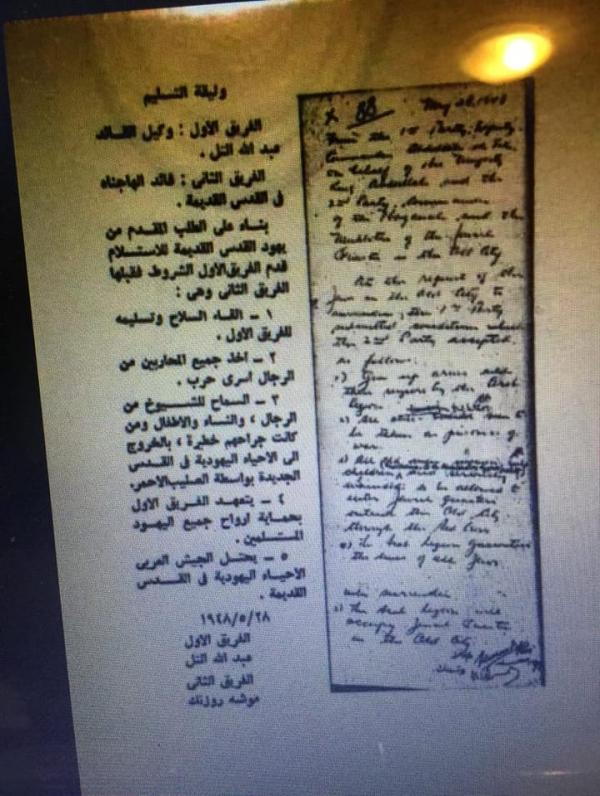 وثيقة التسليم
الفريق الأول : وكيل القائد
عبد الله التل .
الفريق الثاني : قائد الهاجناه
في القدس القديمة .
بناء على الطلب المقدم من
يهود القدس القديمة للاستسلام
قدم الفريق الأول الشروط فقبلها
الفريق الثاني وهي :
١ ــ القاء السلاح وتسليمه
للفريق الأول .
٢ ــ اخذ جميع المحاربين من
الرجال أسرى حرب .
٣ ــ السماح للشيوخ من
الرجال ، والنساء والاطفال ومن
كانت جراحهم خطيرة ، بالخروج
الى الاحياء اليهودية في القدس
الجديدة بواسطة الصليب الاحمر .
٤ ــ يتعهد الفريق الأول
بحماية ارواح جميع اليهود
المستسلمين .
٥ ــ يحتل الجيش العربي
الاحياء اليهودية في القدس
القديمة .
١٩٤٨/٥/٢٨
الفريق الأول
عبد الله التل
الفريق الثاني
موشه روزنك
May 28, 1948
the 1st Party, Deputy
Commander Abdullah
on behalf of His Majesty
King Abdullah and the
2nd Party,
of the Haganah and the
of the Jewish
Quarter in the Old City
At the request of the
Jews in the Old City to
surrender, the 1st Party
submitted conditions which
the 2nd Party accepted.
as follows:
Give up arms and
by the Arab
Legion
be taken as prisoners of
war.
All
children and
to be allowed to
enter Jewish Quarters
outside the Old City
through the Red Cross
The Arab Legion Guarantees
the lives of all Jews
who surrender
The Arab Legion will
occupy Jewish Quarter
in the Old City